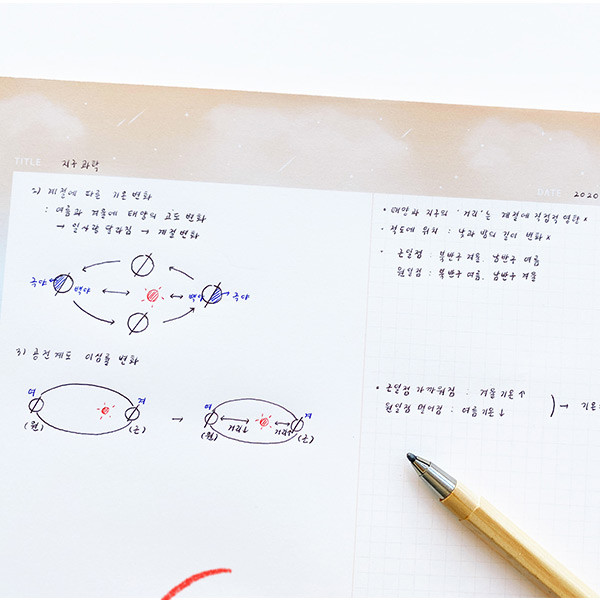 TITLE 지구과학
DATE 2020
2) 계절에 따른 기온 변화
: 여름과 겨울에 태양의 고도 변화
→ 일사량 달라짐 → 계절 변화
극야
백야
백야
극야
3) 공전궤도 이심률 변화
여
겨
(원)
(근)
→
여
겨
거리↓
거리↑
(원)
(근)
• 태양과 지구의 '거리'는 계절에 직접적 영향 x
• 적도에 위치 : 낮과 밤의 길이 변화 x
• 근일점 : 북반구 겨울, 남반구 여름
원일점 : 북반구 여름, 남반구 겨울
• 근일점 가까워짐 : 겨울 기온↑
원일점 멀어짐 : 여름 기온↓
→ 기온